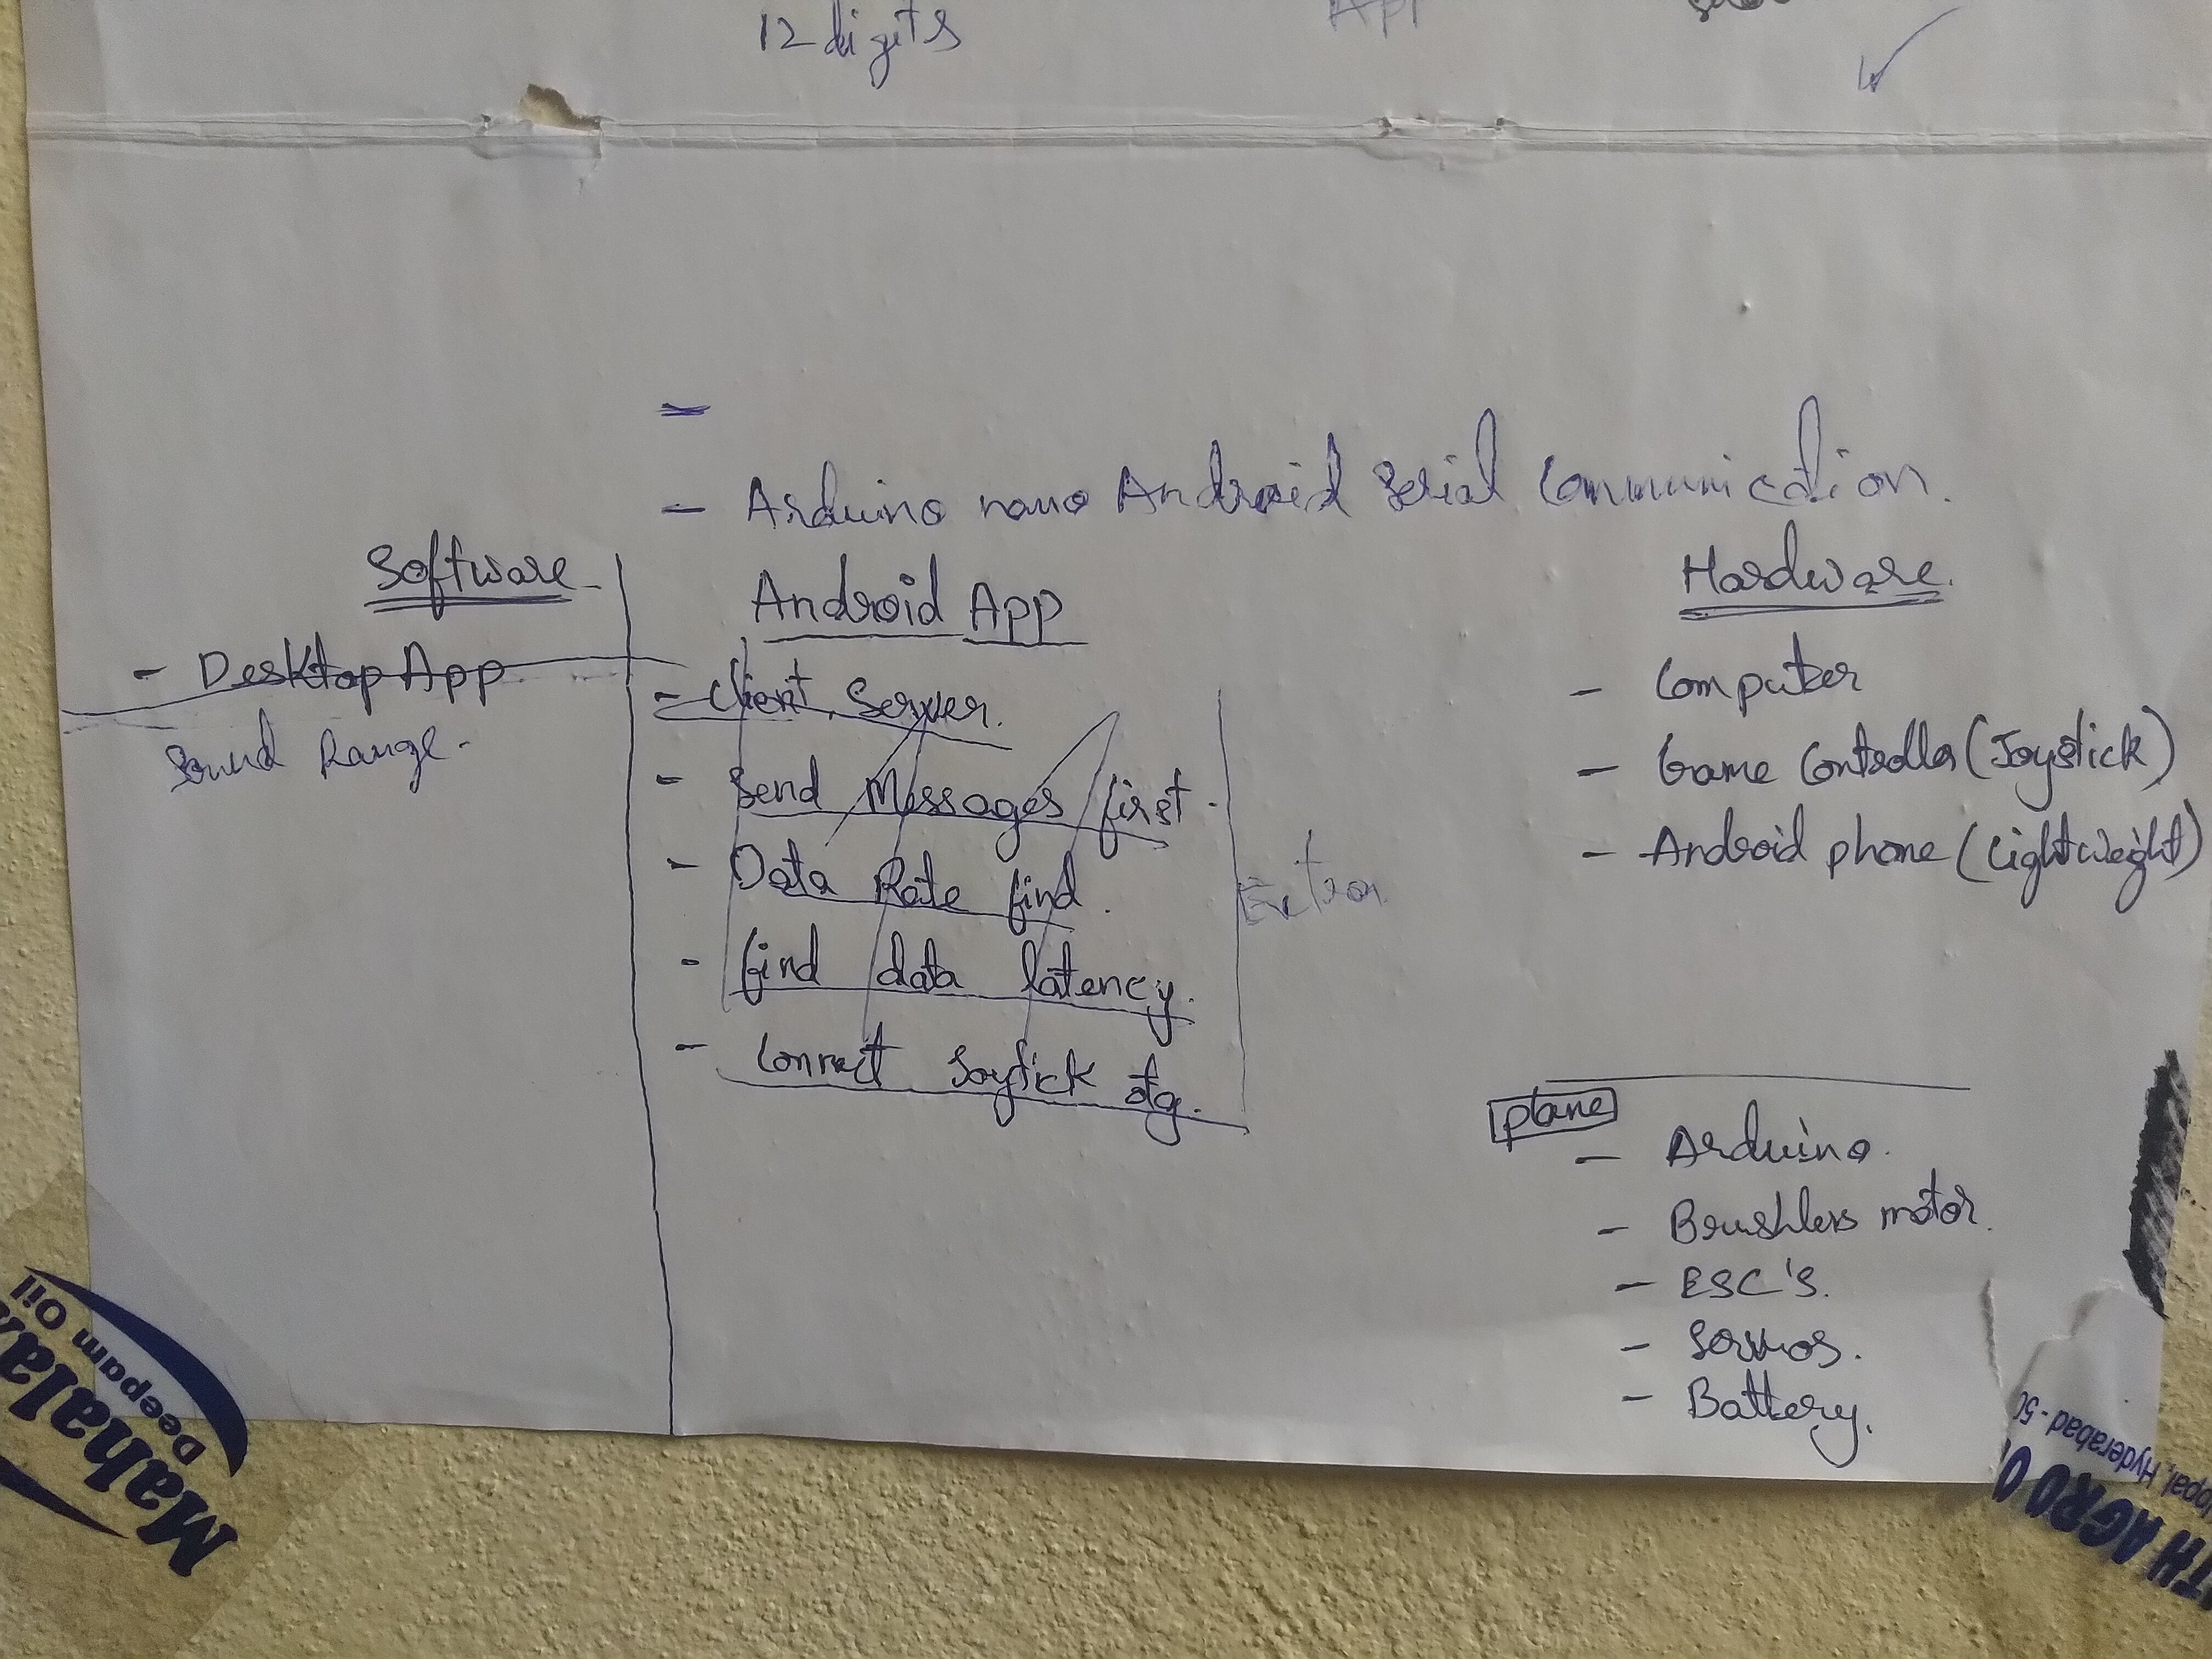 12 digits
API
- Arduino nano Android Serial Communication.
Software
- Desktop App
Sound Range.
Android App
- Client Server.
- Send Messages first.
- Data Rate find.
- find data latency.
- Connect Joytick otg.
Extra
Hardware.
- Computer
- Game Controller (Joystick)
- Android phone (Lightweight)
plane
- Arduino.
- Brushless motor.
- ESC'S.
- Servos.
- Battery.
Deepam Oil
Hyderabad - 50
TH AGRO O